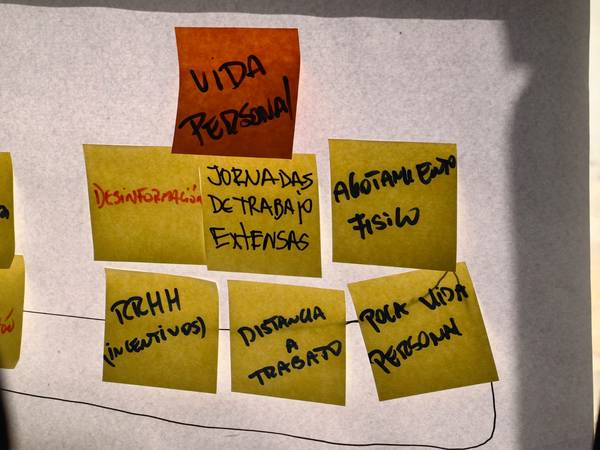 VIDA
PERSONAL
DESINFORMACIÓN
JORNADAS
DE TRABAJO
EXTENSAS
AGOTAMIENTO
FISICO
RRHH
(INCENTIVOS)
DISTANCIA
A
TRABAJO
POCA VIDA
PERSONAL